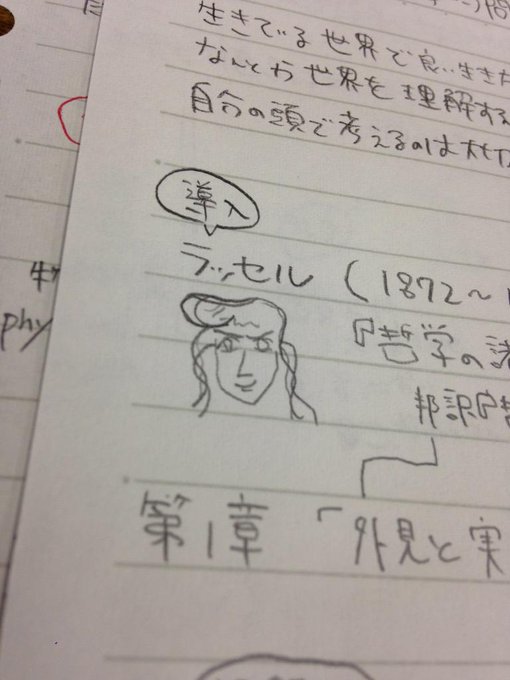 生きている世界で良い生き
なんとか世界を理解する
自分の頭で考えるのは大切
導入
ラッセル (1872~
『哲学の諸
邦訳『哲
第1章 「外見と実
phy